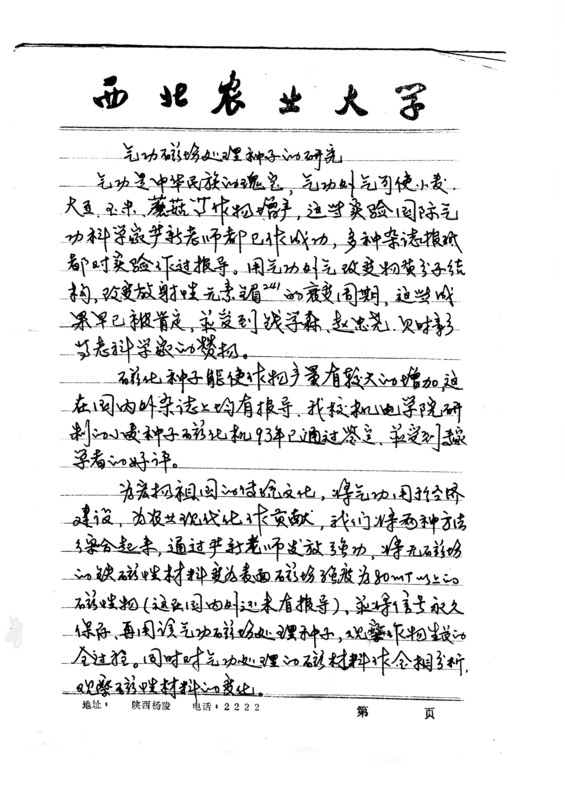 西北农业大学
气功磁场处理种子的研究
气功是中华民族的瑰宝，气功外气可使小麦、
大豆、玉米、蘑菇等作物增产，这些实验国际气
功科学家严新老师都已作成功，多种杂志报纸
都对实验作过报导。用气功外气改变物质分子结
构，改变放射性元素镅²⁴¹的衰变周期，这些成
果早已被肯定，并受到钱学森、赵忠尧、贝时彰
等老科学家的赞扬。
磁化种子能使作物产量有较大的增加，这
在国内外杂志上均有报导，我校机电学院研
制的小麦种子磁化机93年已通过鉴定，并受到专家
学者的好评。
为宏扬祖国的传统文化，将气功用于经济
建设，为农业现代化作贡献，我们将两种方法
综合起来，通过严新老师发放强功，将无磁场
的铁磁性材料变为表面磁场强度为80mT以上的
磁性物（这在国内外还未有报导），并将信号永久
保存，再用该气功磁场处理种子，观察作物生长的
全过程。同时对气功处理的磁材料作金相分析，
观察磁性材料的变化。
地址： 陕西杨陵 电话：2222 第 页